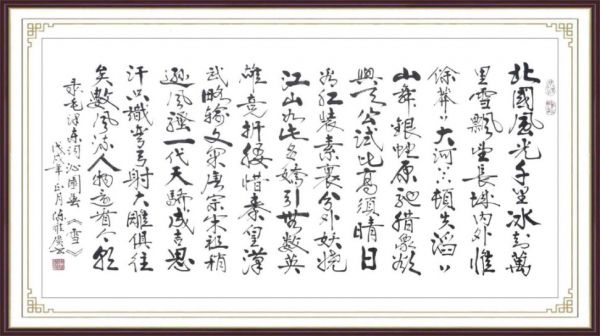 北國風光千里冰封萬
里雪飄望長城內外惟
餘莽〃大河上下頓失滔〃
山舞銀蛇原馳蜡象欲
與天公試比高須晴日
看紅裝素裹分外妖嬈
江山如此多嬌引無數英
雄競折腰惜秦皇漢
武略輸文采唐宗宋祖稍
遜風騷一代天驕成吉思
汗只識彎弓射大雕俱往
矣數風流人物還看今朝
录毛泽东词沁園春《雪》
戊戌年正月